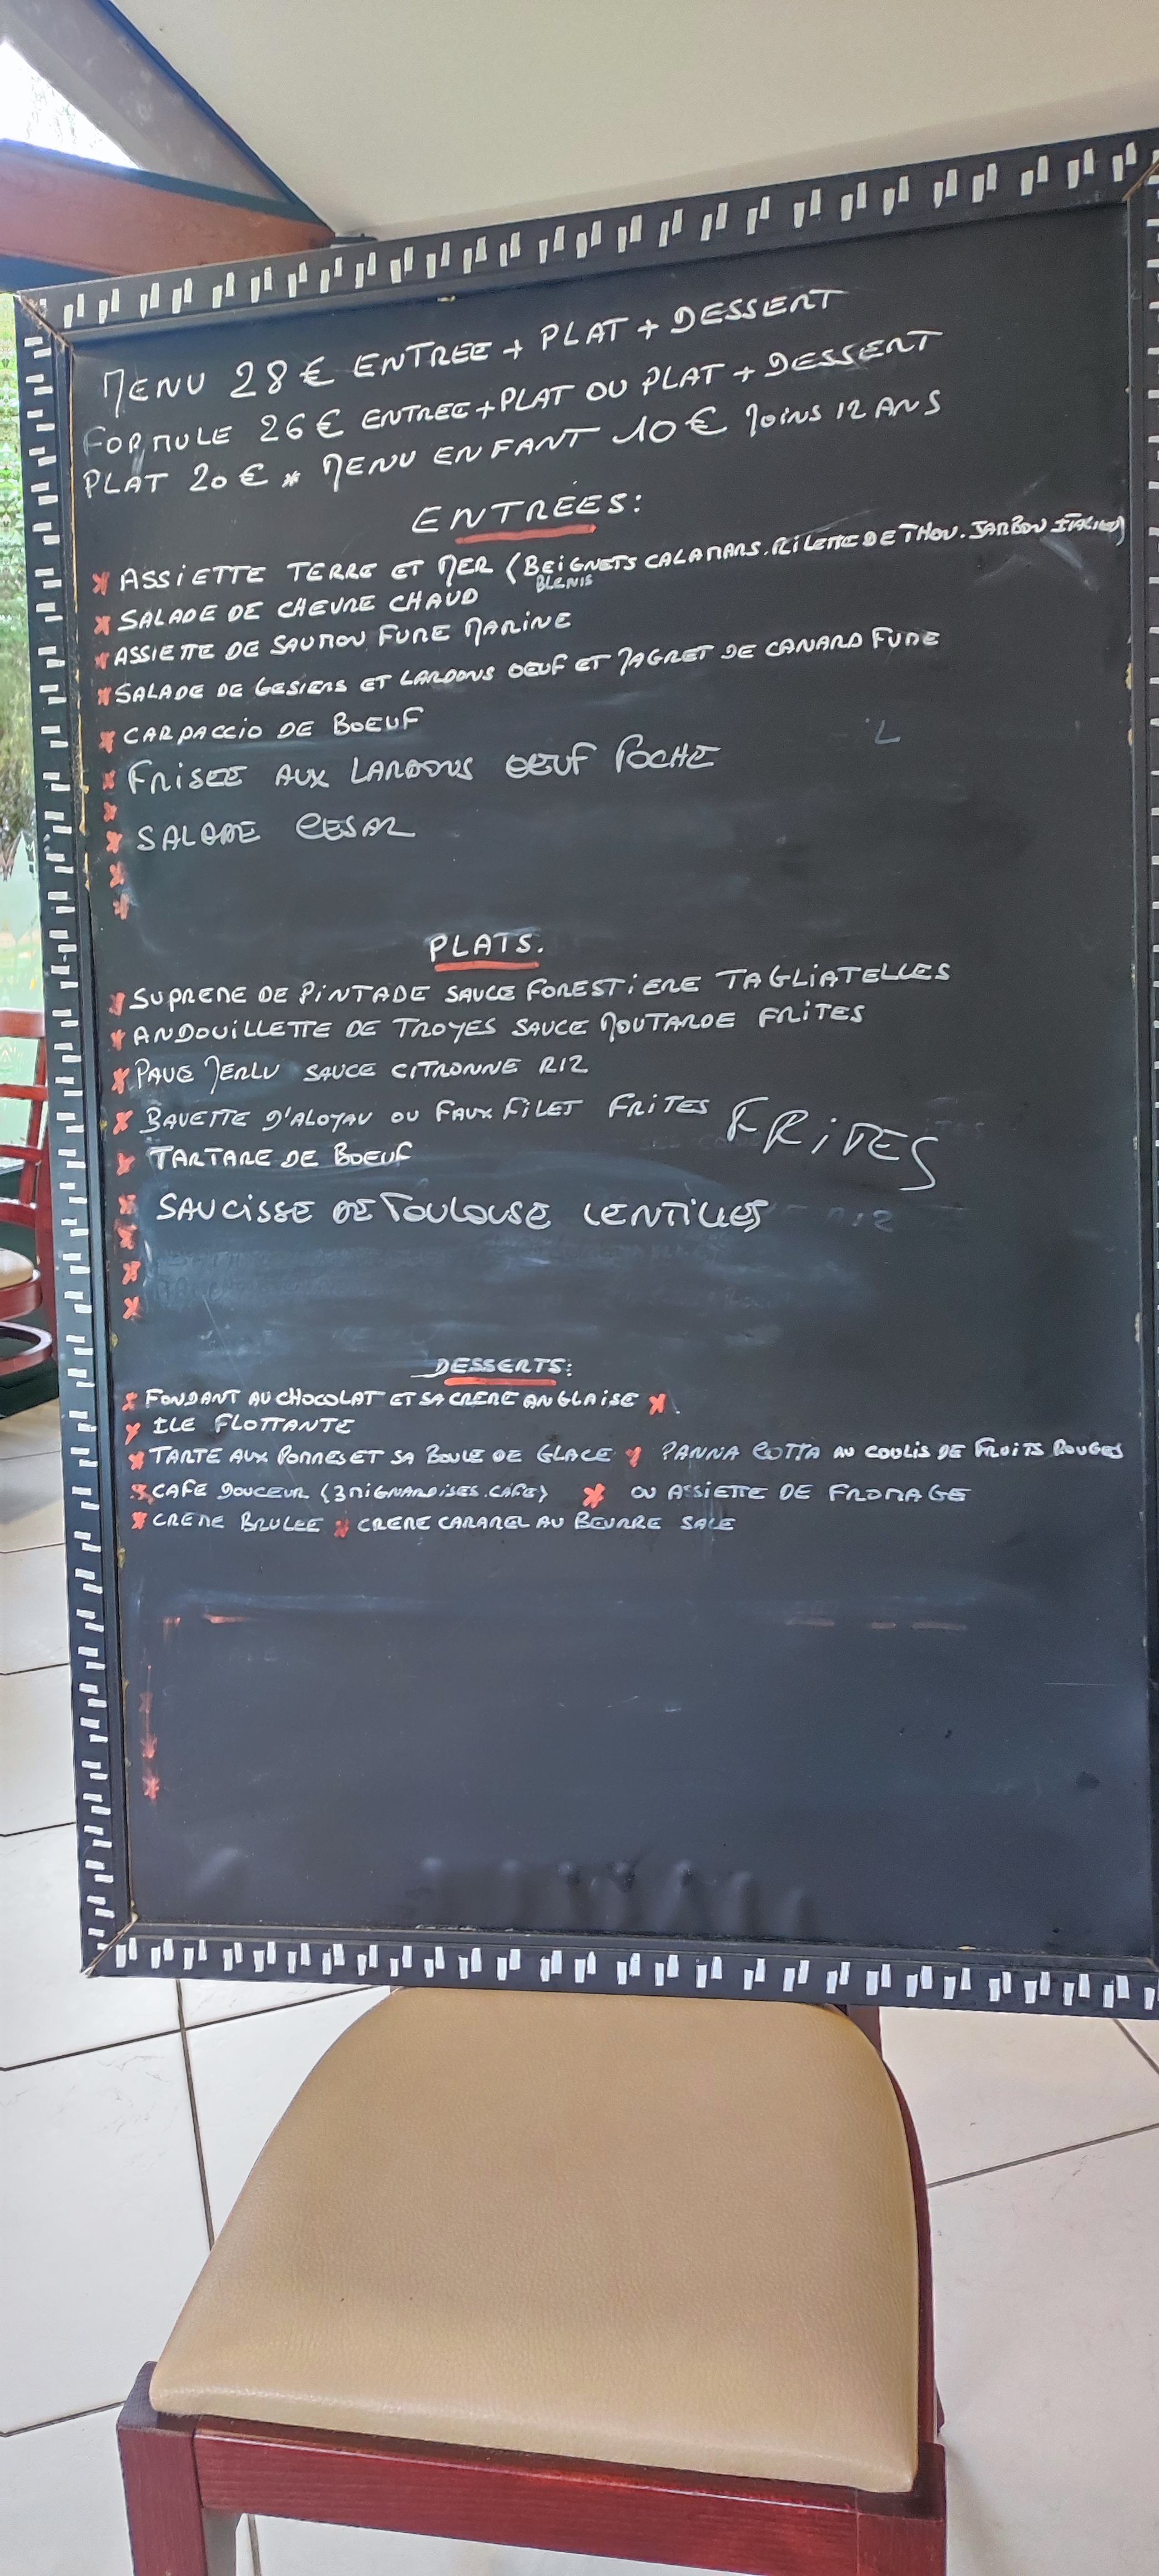 MENU 28€ ENTREE + PLAT + DESSERT
FORMULE 26€ ENTREE + PLAT OU PLAT + DESSERT
PLAT 20€ * MENU ENFANT 10€ MOINS 12 ANS
ENTRÉES:
* ASSIETTE TERRE ET MER (BEIGNETS CALAMARS. RILETTE DE THON. JAMBON ITALIEN)
* SALADE DE CHEVRE CHAUD
* ASSIETTE DE SAUMON FUME MARINE BLINIS
* SALADE DE GESIERS ET LARDONS OEUF ET MAGRET DE CANARD FUME
* CARPACCIO DE BOEUF
* FRISEE AUX LARDONS OEUF POCHE
* SALADE CESAR
PLATS.
* SUPREME DE PINTADE SAUCE FORESTIERE TAGLIATELLES
* ANDOUILLETTE DE TROYES SAUCE MOUTARDE FRITES
* PAVE MERLU SAUCE CITRONNE RIZ
* BAVETTE D'ALOYAU OU FAUX FILET FRITES
* TARTARE DE BOEUF FRITES
* SAUCISSE DE TOULOUSE LENTILLES
DESSERTS:
* FONDANT AU CHOCOLAT ET SA CREME ANGLAISE *
* ILE FLOTTANTE
* TARTE AUX POMMES ET SA BOULE DE GLACE * PANNA COTTA AU COULIS DE FRUITS ROUGES
* CAFE DOUCEUR (3 MIGNARDISES. CAFE) * OU ASSIETTE DE FROMAGE
* CREME BRULEE * CREME CARAMEL AU BEURRE SALE